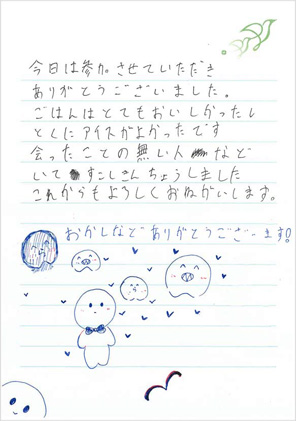 今日は参加させていただき
ありがとうございました。
ごはんはとてもおいしかったし
とくにアイスがよかったです
会ったことの無い人など
いてすこしきんちょうしました
これからもよろしくおねがいします。
おかしなどありがとうございます!